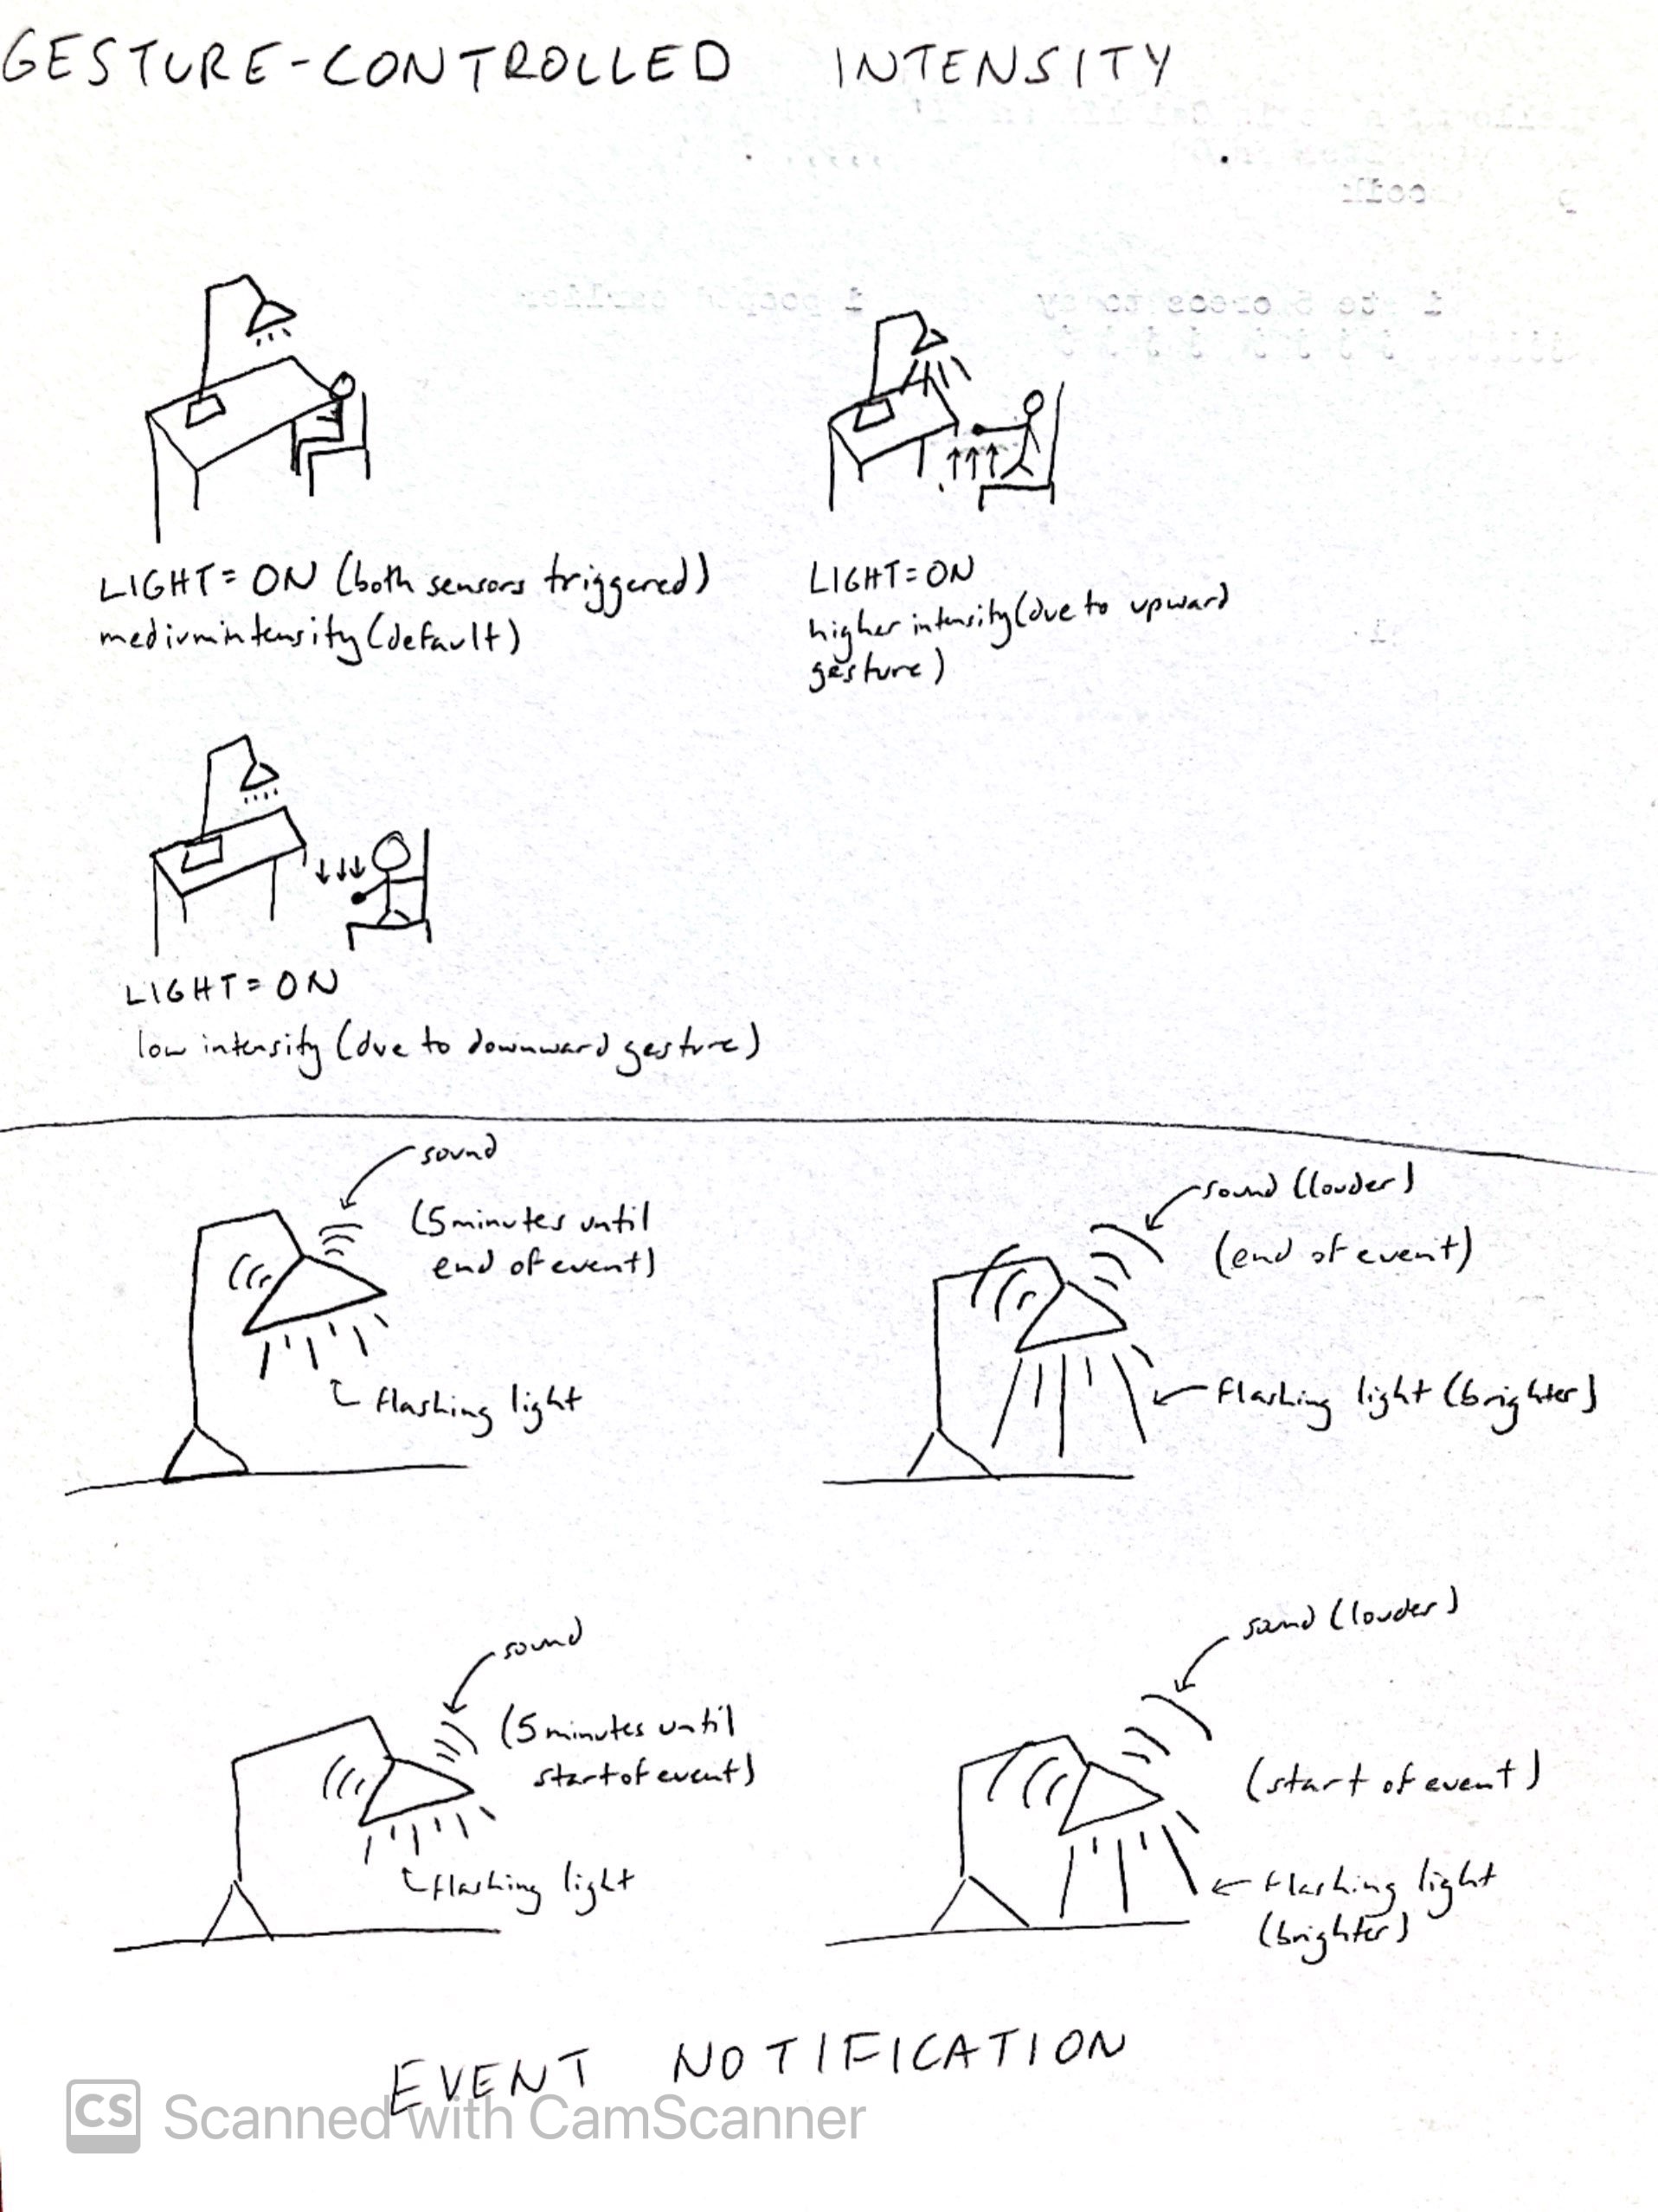 GESTURE-CONTROLLED INTENSITY
LIGHT = ON (both sensors triggered)
medium intensity (default)
LIGHT = ON
higher intensity (due to upward
gesture)
LIGHT = ON
low intensity (due to downward gesture)
sound
(5 minutes until
end of event)
flashing light
sound (louder)
(end of event)
flashing light (brighter)
sound
(5 minutes until
start of event)
flashing light
sound (louder)
(start of event)
flashing light
(brighter)
EVENT NOTIFICATION
CS Scanned with CamScanner